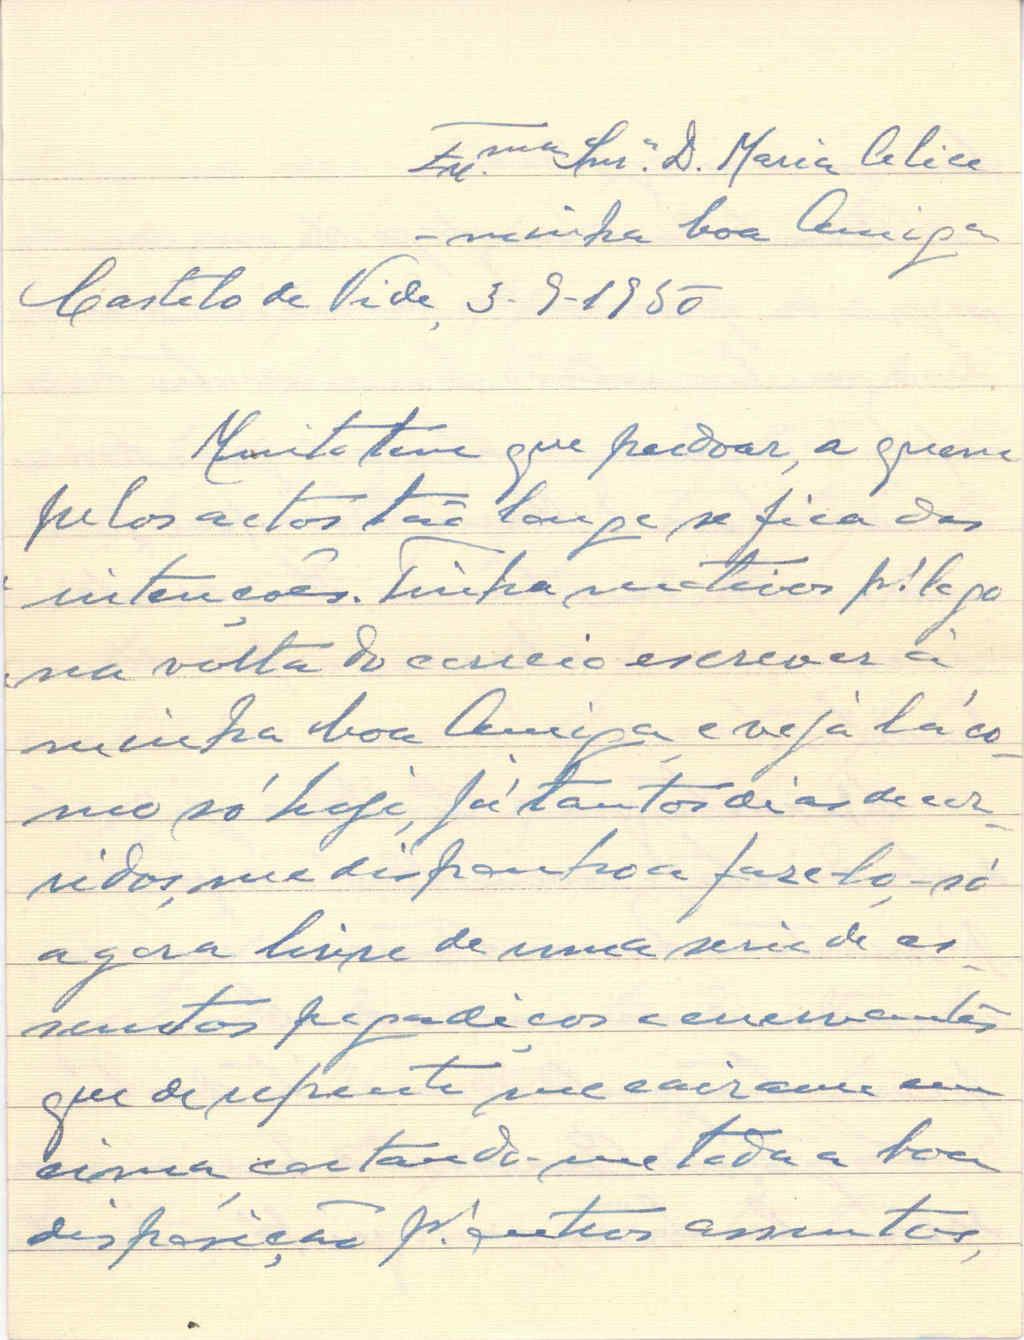 Exc.ma Snr.ª D. Maria Celice
- minha boa Amiga
Castelo de Vide, 3-9-1950
Muito tem que perdoar, a quem
pelos actos tão longe se fica das
intenções. Tinha motivos p.ª logo
na volta do correio escrever á
minha boa Amiga, e veja lá co-
mo só hoje, já tantos dias decor-
ridos, me disponho a faze-lo - só
agora livre de uma serie de as-
suntos pegadiços e enervantes
que de repente me cairam em
cima cortando-me toda a boa
disposição p.ª outros assuntos,